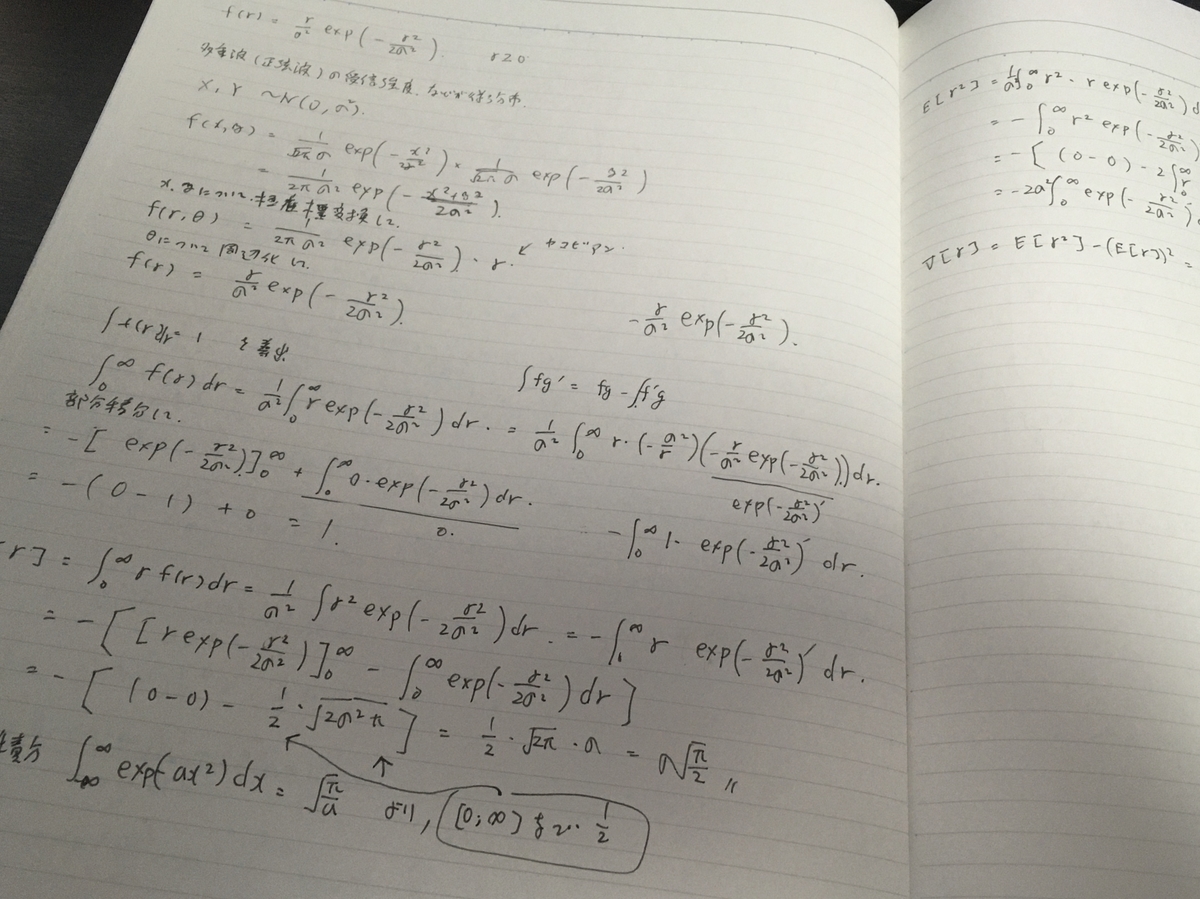 f(r) = r/σ² exp(-r²/2σ²). r≥0
X, Y ~N(0, σ²).
f(x,y) = 1/√2π σ exp(-x²/2σ²) × 1/√2π σ exp(-y²/2σ²)
= 1/2πσ² exp(-x²+y²/2σ²).
x, yについて極座標変換して
f(r,θ) = 1/2πσ² exp(-r²/2σ²)・r. ↙ ヤコビアン.
θについて周辺化して
f(r) = r/σ² exp(-r²/2σ²).
-r/σ² exp(-r²/2σ²).
∫f(r)dr = 1
∫fg' = fg - ∫f'g
∫₀^∞ f(r) dr = 1/σ² ∫₀^∞ r exp(-r²/2σ²) dr. = 1/σ² ∫₀^∞ r・(-σ²/r)(-r/σ² exp(-r²/2σ²))dr.
exp(-r²/2σ²)'
部分積分して
= -[exp(-r²/2σ²)]₀^∞ + ∫₀^∞ 0・exp(-r²/2σ²) dr.
0.
-∫₀^∞ 1・exp(-r²/2σ²)' dr.
= -(0-1) + 0 = 1.
r] = ∫₀^∞ r f(r) dr = 1/σ² ∫r² exp(-r²/2σ²) dr. = -∫₀^∞ r exp(-r²/2σ²)' dr.
= -[[r exp(-r²/2σ²)]₀^∞ - ∫₀^∞ exp(-r²/2σ²) dr]
= -[(0-0) - 1/2・√2σ²π] = 1/2・√2π・σ = σ√π/2 〃
積分 ∫∞^∞ exp(-ax²) dx = √π/a より, [0;∞] 1/2
E[r²] = 1/σ² ∫₀^∞ r²・r exp(-r²/2σ²) d
= -∫₀^∞ r² exp(-r²/2σ²)
= -[(0-0) - 2∫₀^∞ r
= -2σ² ∫₀^∞ exp(-r²/2σ²)
V[r] = E[r²] - (E[r])² =